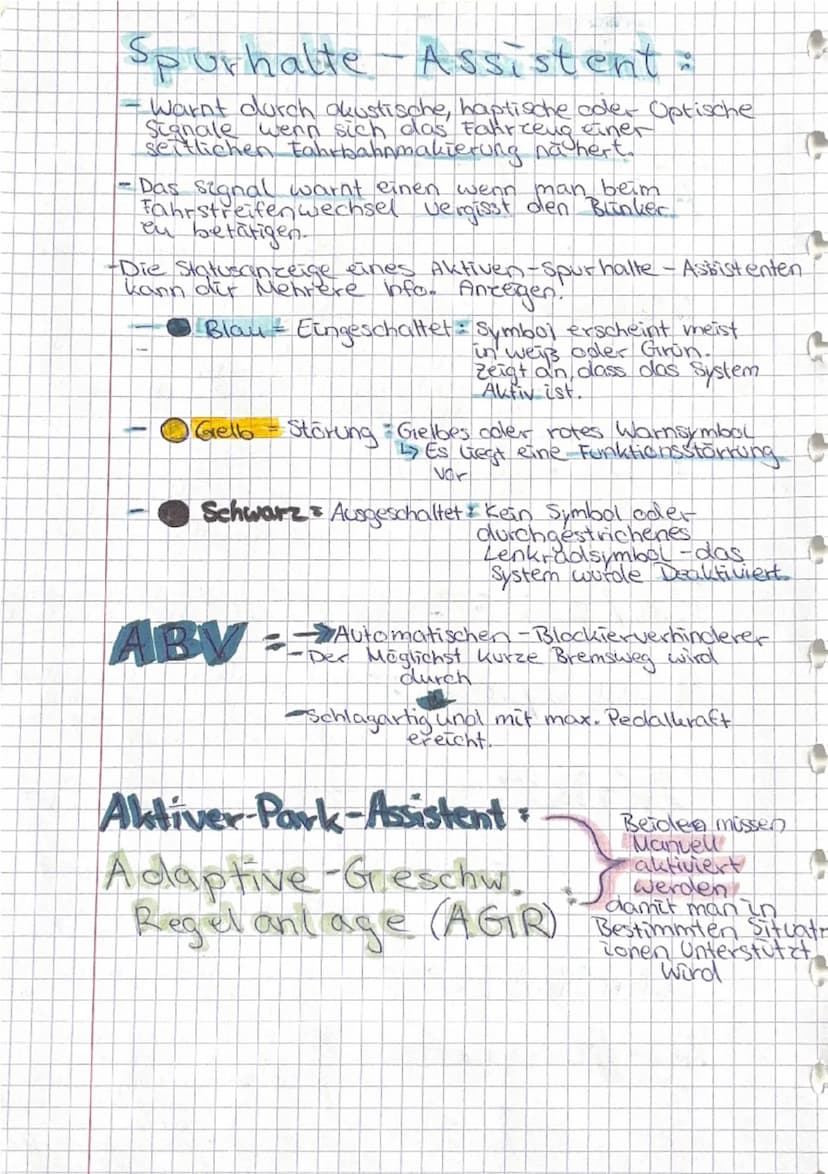 Spurhalte-Assistent:
- Warnt durch akustische, haptische oder Optische
Signale wenn sich das Fahrzeug einer
seitlichen Fahrbahnmakierung nähert.
- Das Signal warnt einen wenn man beim
Fahrstreifenwechsel vergisst den Blinker
zu betätigen.
- Die Statusanzeige eines Aktiven-Spurhalte-Assistenten
kann dir Mehrere Info. Anzeigen.
- Blau = Eingeschaltet: Symbol erscheint meist
in weiß oder Grün.
Zeigt an, dass das System
Aktiv ist.
- Gelb = Störung: Gelbes oder rotes Warnsymbol
↳ Es liegt eine Funktionsstörrung
vor
- Schwarz = Ausgeschaltet: Kein Symbol oder
durchgestrichenes
Lenkradsymbol - das
System wurde Deaktiviert.
ABV = → Automatischen-Blockierverhinderer
- Der Möglichst kurze Bremsweg wird
durch
- Schlagartig und mit max. Pedalkraft
ereicht.
Aktiver-Park-Assistent:
Adaptive-Geschw.
Regelanlage (AGR) :-
Beiden müssen
Manuell
aktiviert
werden
damit man in
Bestimmten Situat-
ionen Unterstützt
wird